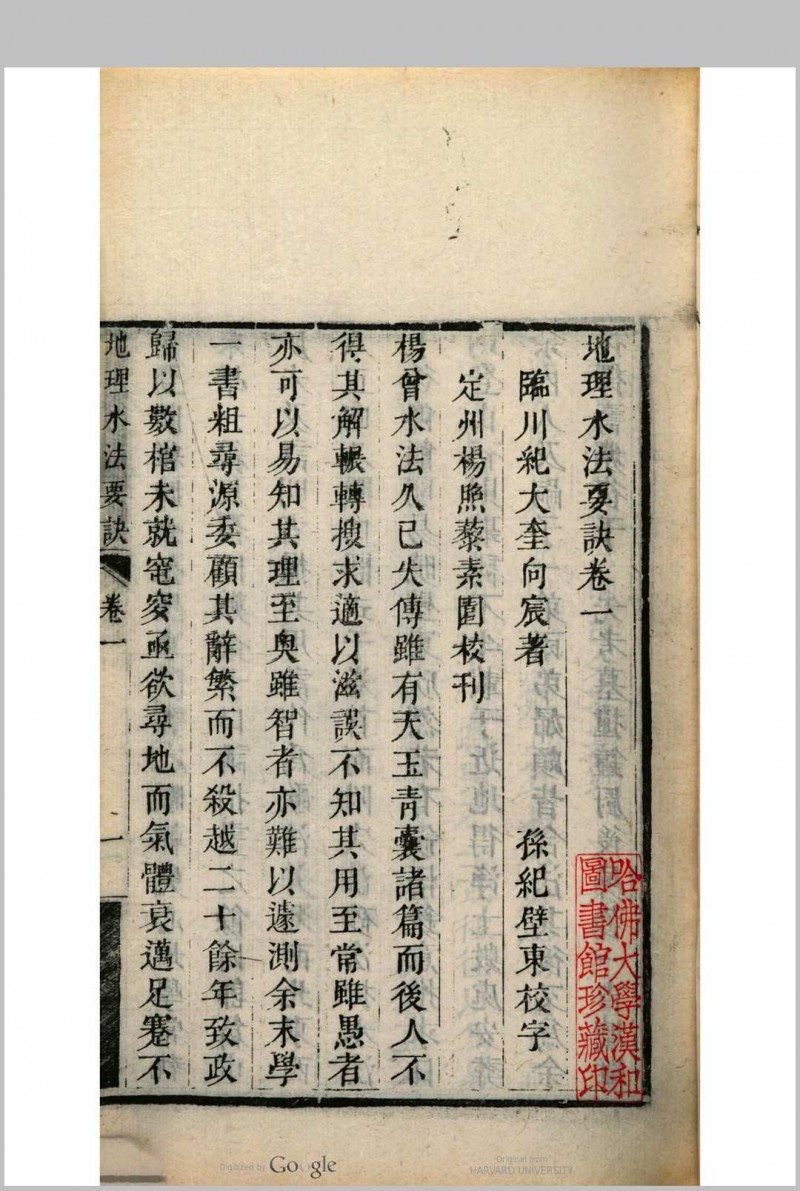 地理水法要訣卷一
臨川紀大奎向宸著　孫紀壁東校字
定州楊照藜素園校刊
楊曾水法久已失傳雖有天玉青囊諸篇而後人不
得其解輾轉搜求適以滋誤不知其用至常雖愚者
亦可以易知其理至奥雖智者亦難以遽測余末學
一書粗尋源委顧其辭繁而不殺越二十餘年致政
歸以數棺未就窀穸亟欲尋地而氣體衰邁足蹇不
地理水法要訣　卷一　一
哈佛大學漢和
圖書館珍藏印
Digitized by Google
Original from
HARVARD UNIVERSITY